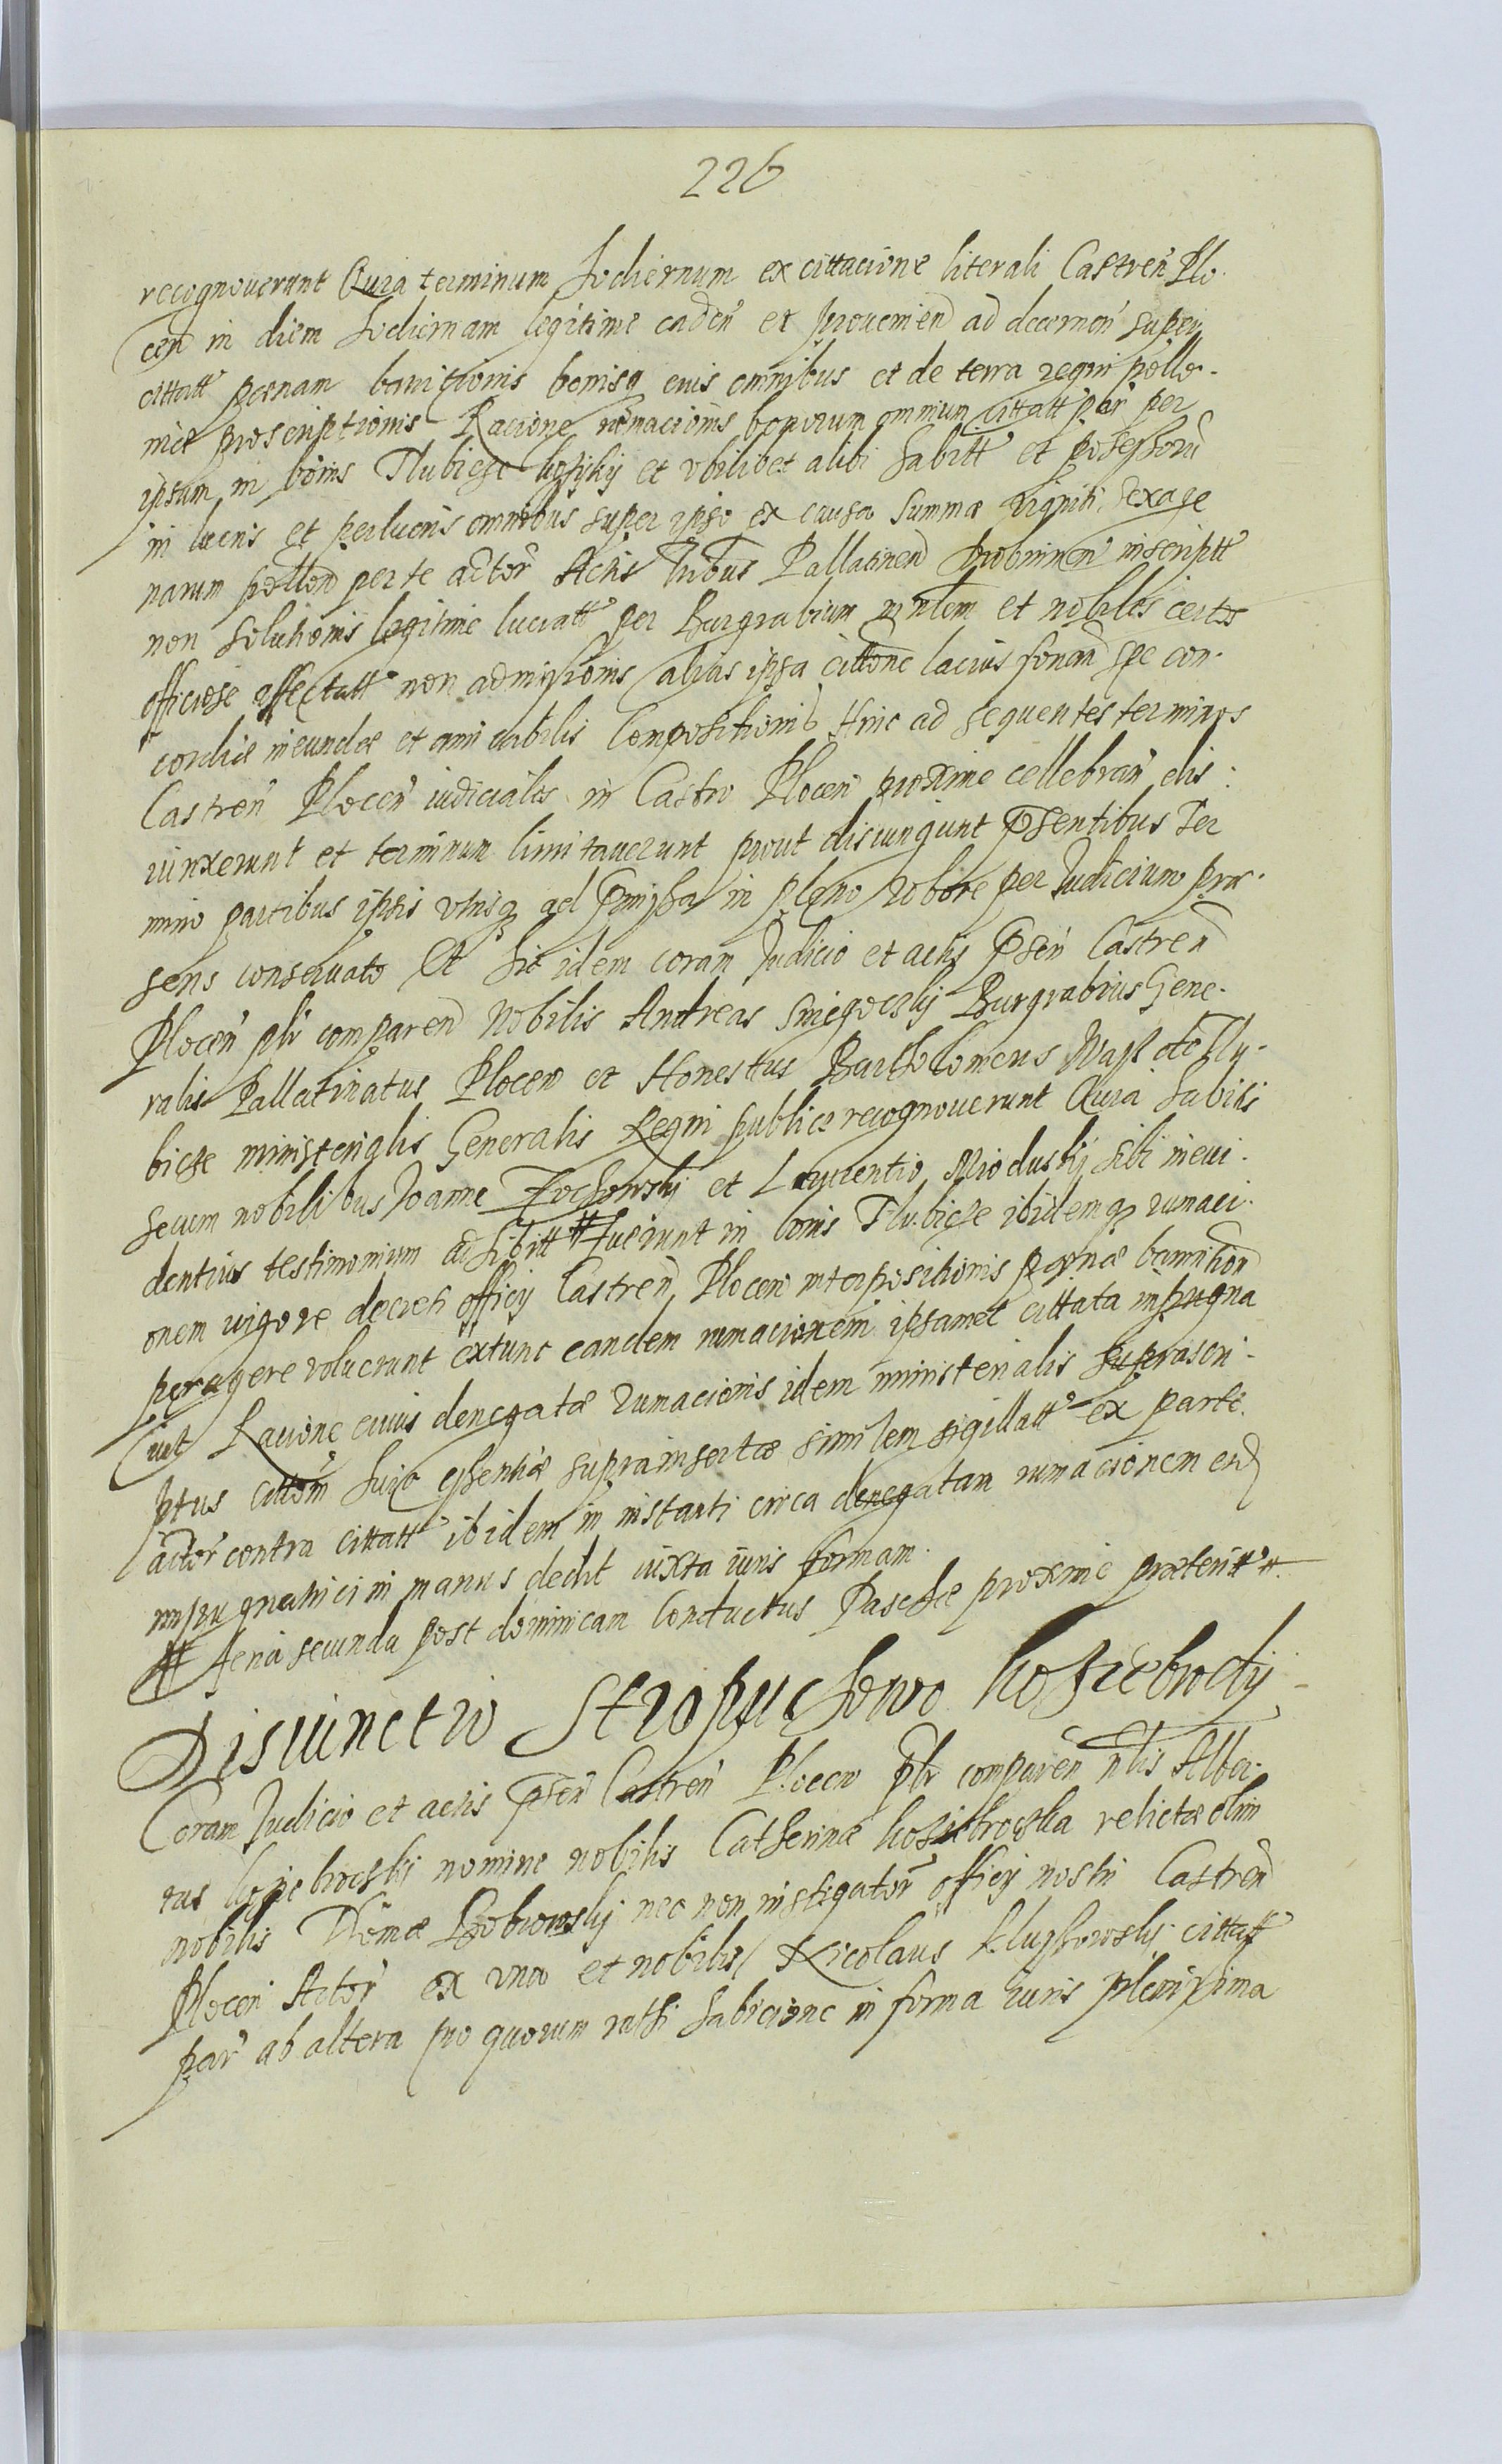 226
recognouerunt Quia terminum hodiernum ex cittacione literali Castren Plo.
cen in diem hodiernam legitime caden et prouenien ad decernen super
cittatt pœnam bannitionis bonisq eius omnibus et de terra regni pollo-
niæ proscriptionis Racione rumacionis bonorum omnium cittatt par per
ipsum in bonis Tlubicze et vbilibet alibi habitt et possessoru
in lucris et perlucris omnibus super ipso ex causa summæ triginti sexage
narum pollon per te actor Actis Pallatinen inscriptt
non solutionis legitime lucratt per Burgrabium mntlem et nobiles certos
officiose affectatt non admissionis alias ipsa cittone lacius sonan spe con-
cordiæ ineundæ et amicabilis Compositionis Hinc ad sequentes terminos
Castren Plocen iudiciales in Castro Plocen proxime cellebran dis:
iunxerunt et terminum limitauerunt prout disiungunt Pntibus Ter
mino partibus ipsis vtrisq ad Pmissa in pleno robore per Judicium præ-
sens conseruato Et hic idem coram Judicio et actis Psen Castren
Plocen plr comparen Nobilis Andreas Burgrabius Gene-
ralis Pallatinatus Plocen et Honestus Bartholomeus de Tlu-
bicze ministerialis Generalis Regni publice recognouerunt Quia habitis
secum nobilibus Joanne Zochowskÿ et Laurentio Mioduskÿ sibi in eui-
dentius testimonium adhibitt # fuerunt in bonis Tlubicze ibidemq rumaci-
onem uigore decreti officÿ Castren Plocen interpositionis pœnæ bannition
peragere voluerunt extunc eandem rumacionem ipsamet cittata inpugna
uit Racione cuius denegatæ rumacionis idem ministerialis suprascri-
ptus cittom huic essentiæ suprainsertæ similem sigillatt ex parte
actor contra cittatt ibidem in instanti circa denegatam rumacionem eid
inpugnatrici in manus dedit iuxta iuris formam.
# feria secunda post dominicam Conductus Paschæ proxime præteritt #
Disiunctio Stropuchowo koziebrody
Coram Judicio et actis Psen Castren Plocen plr comparen nlis Alber-
tus nomine nobilis Catherinæ relictæ olim
nobilis Thomæ Bobrowskÿ nec non instigator officÿ nostri Castren
Plocen Actor ex vna et nobilis Nicolaus cittatt
par ab altera pro quorum rathi habicione in forma iuris plenissima